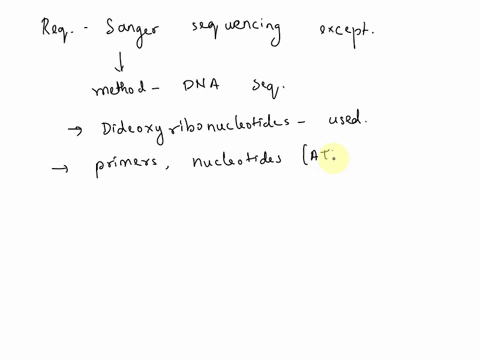 Req. - Sanger sequencing except.
↓
method - DNA seq.
→ Dideoxyribonucleotides - used.
→ primers, nucleotides (AT